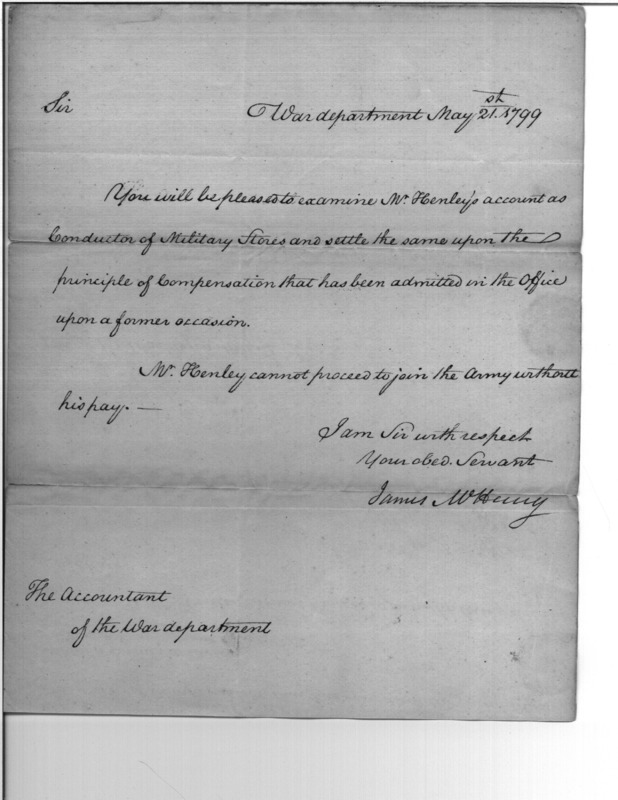 Sir War department May 21.st 1799
You will be pleased to examine Mr. Henley's account as
Conductor of Military Stores and settle the same upon the
principle of Compensation that has been admitted in the Office
upon a former occasion.
Mr. Henley cannot proceed to join the Army without
his pay. —
I am Sir with respect
Your obed. Servant
James McHenry
The Accountant
of the War department